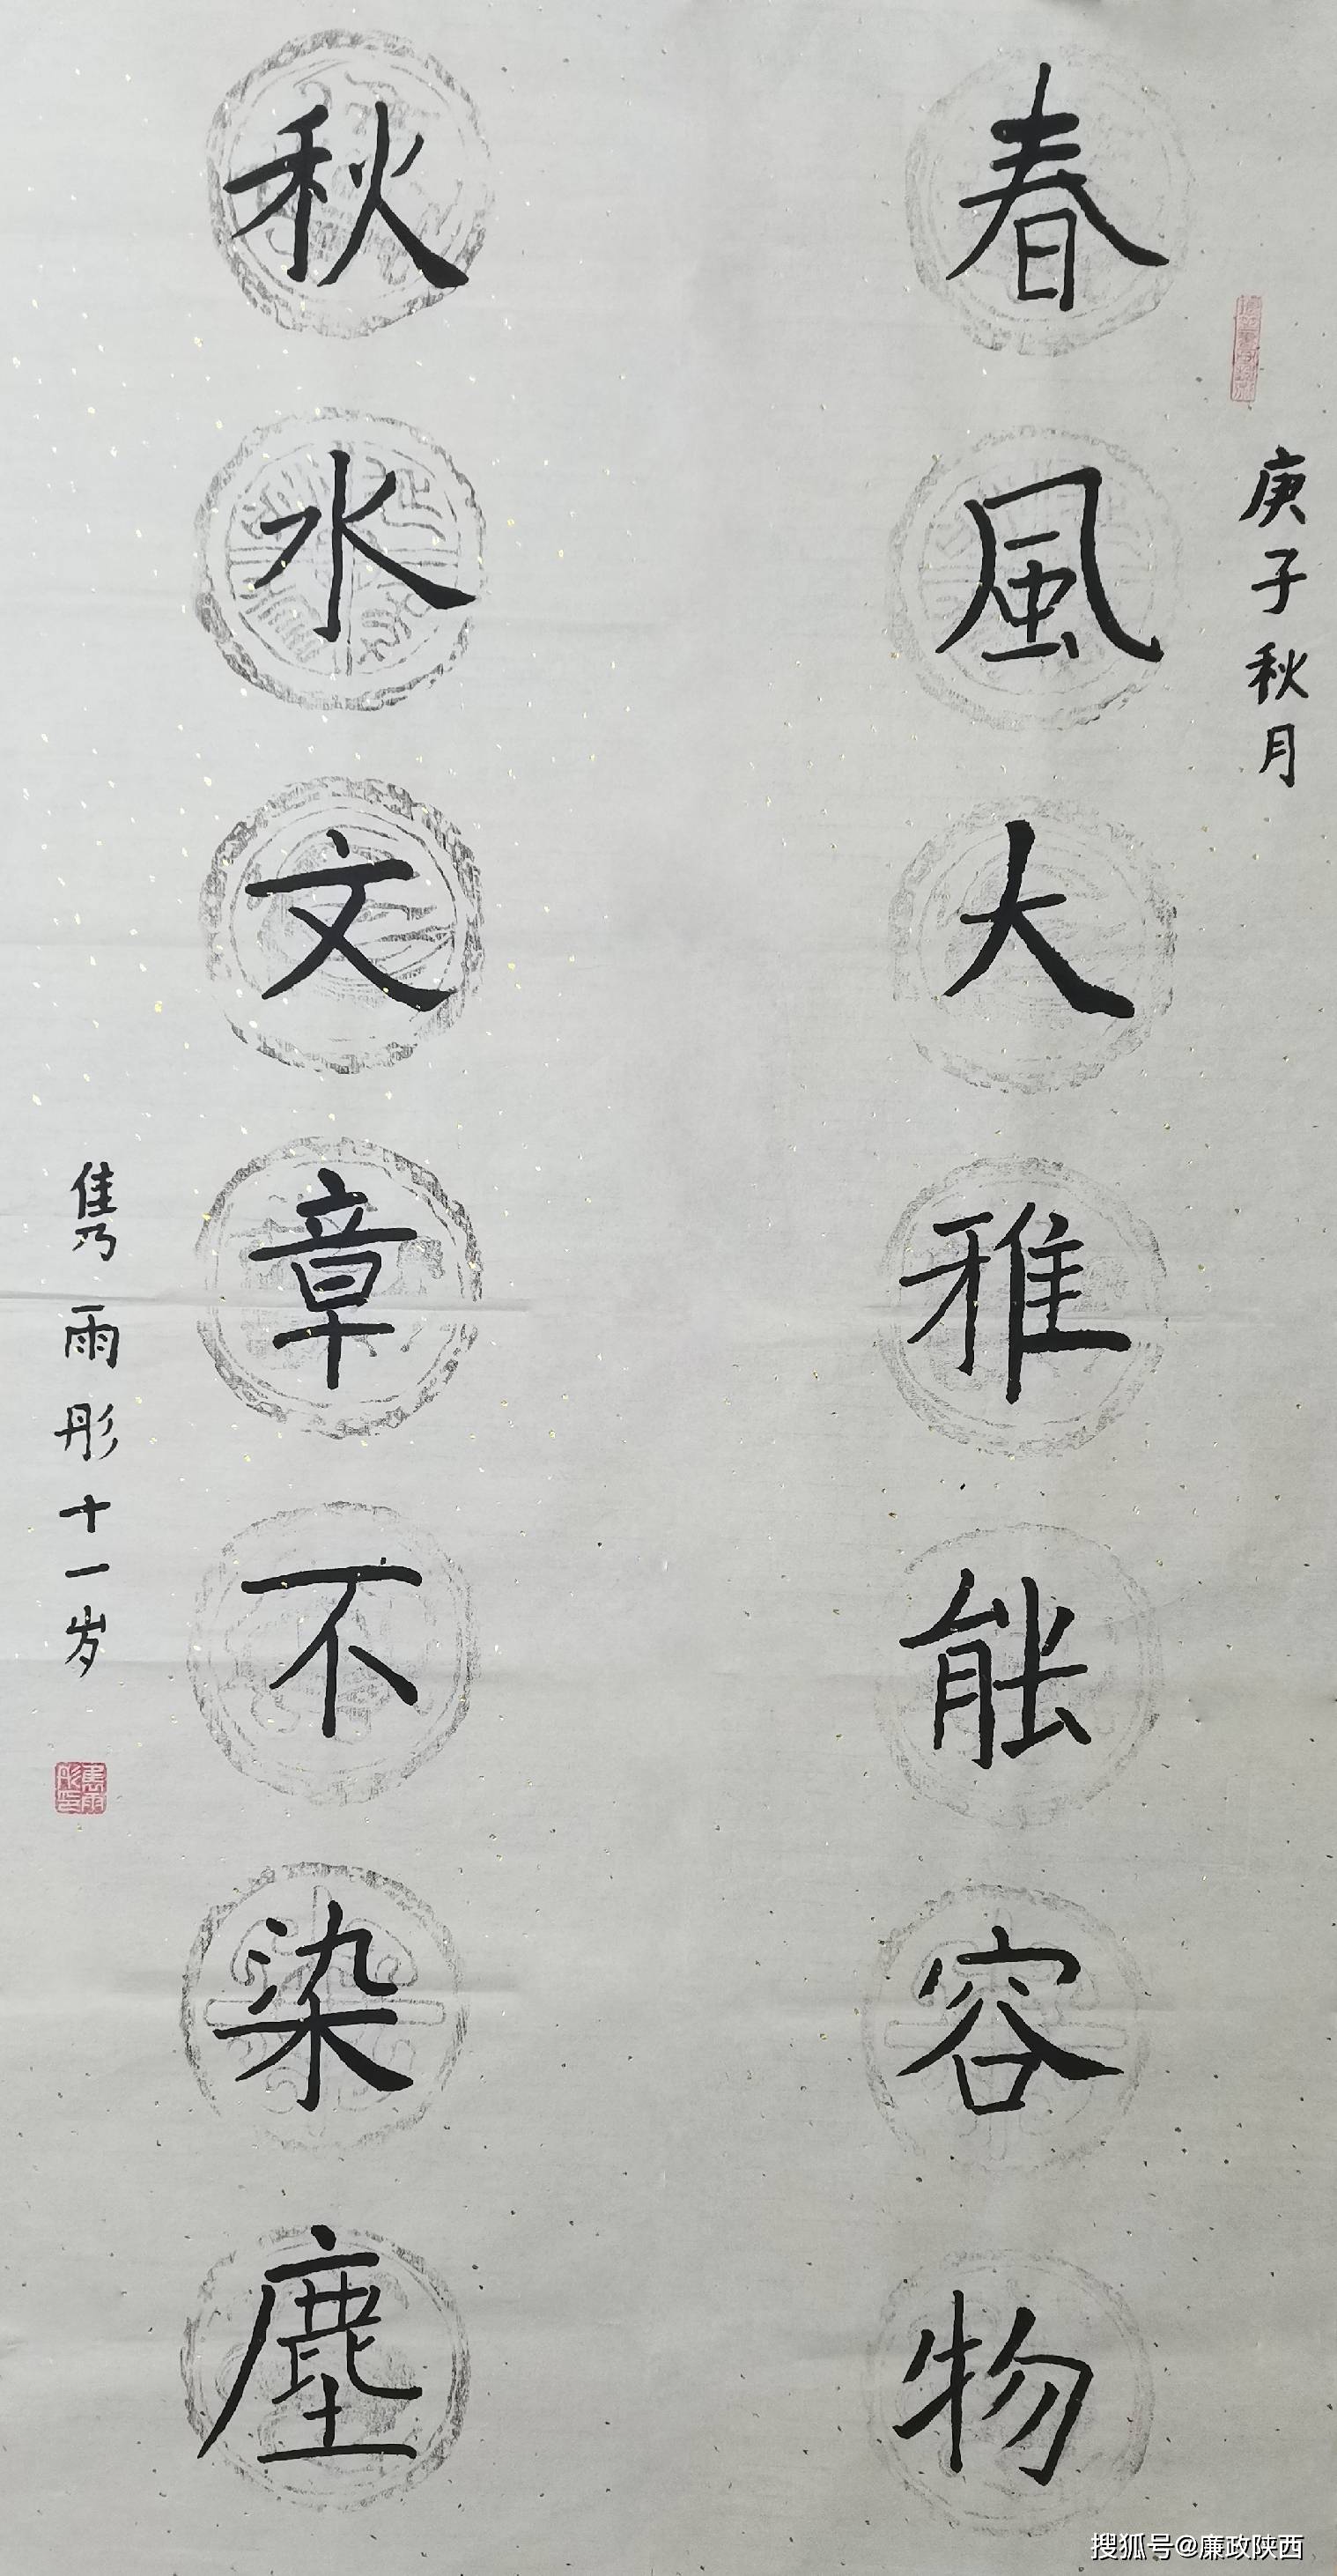 庚子秋月
春風大雅能容物
秋水文章不染塵
雋雨彤十一岁
搜狐号@廉政陕西